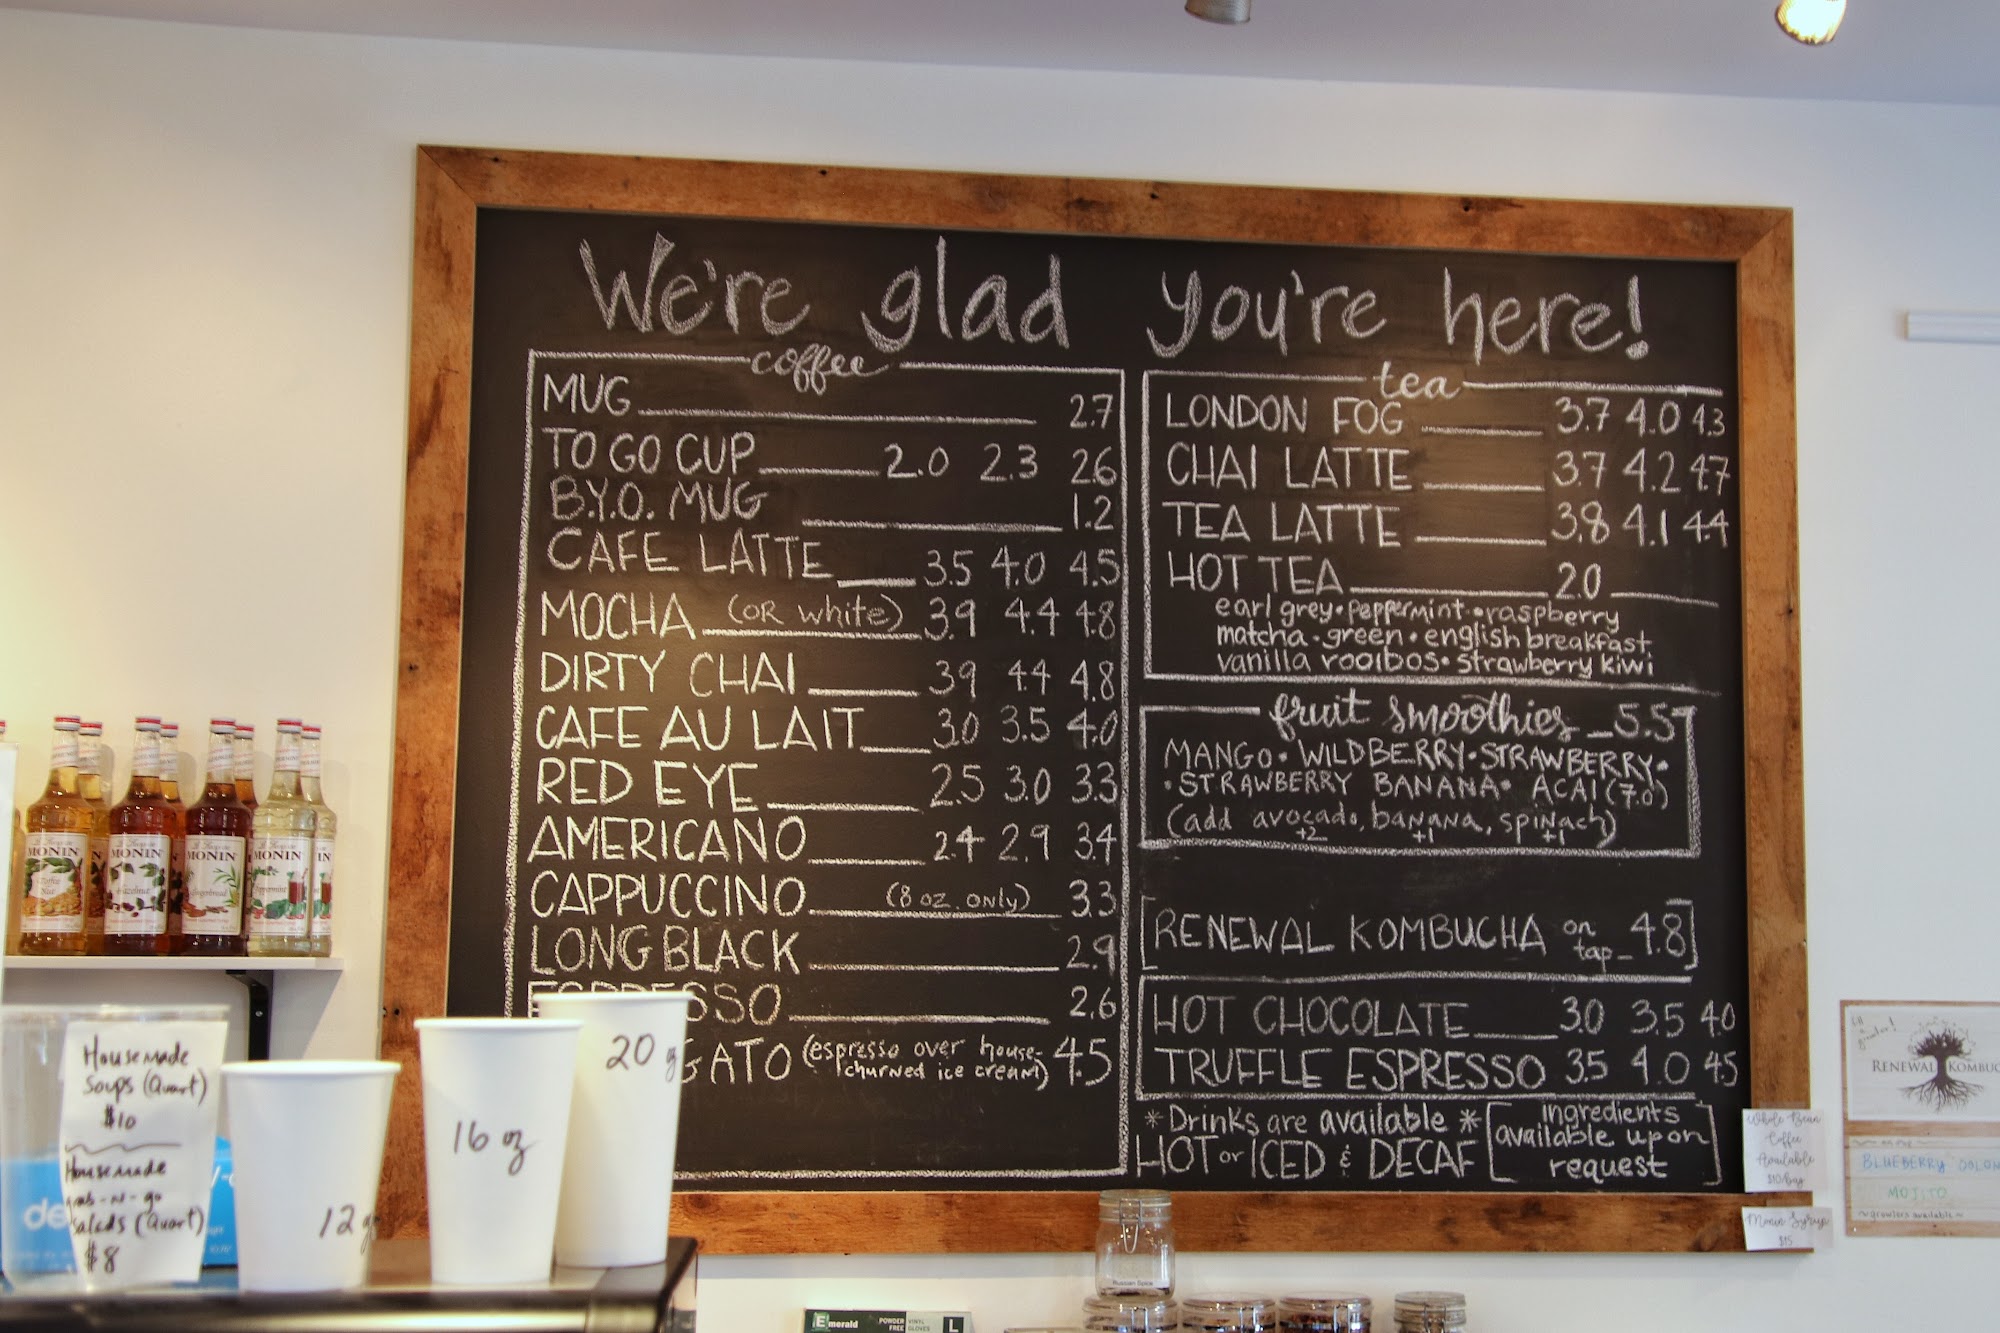 We're glad you're here!
coffee
MUG 2.7
TO GO CUP 2.0 2.3 2.6
B.Y.O. MUG 1.2
CAFE LATTE 3.5 4.0 4.5
MOCHA (OR white) 3.9 4.4 4.8
DIRTY CHAI 3.9 4.4 4.8
CAFE AU LAIT 3.0 3.5 4.0
RED EYE 2.5 3.0 3.3
AMERICANO 2.4 2.9 3.4
CAPPUCCINO (8 oz. only) 3.3
LONG BLACK 2.9
ESPRESSO 2.6
GATO (espresso over house-
churned ice cream) 4.5
tea
LONDON FOG 3.7 4.0 4.3
CHAI LATTE 3.7 4.2 4.7
TEA LATTE 3.8 4.1 4.4
HOT TEA 2.0
earl grey • peppermint • raspberry
matcha • green • english breakfast
vanilla rooibos • strawberry kiwi
fruit smoothies 5.5
MANGO • WILDBERRY • STRAWBERRY •
• STRAWBERRY BANANA • ACAI (7.0)
(add avocado, banana, spinach)
+2 +1 +1
RENEWAL KOMBUCHA on tap 4.8
HOT CHOCOLATE 3.0 3.5 4.0
TRUFFLE ESPRESSO 3.5 4.0 4.5
*Drinks are available *
HOT or ICED & DECAF
[ingredients
available upon
request]
MONIN
Toffee
Nut
MONIN
Hazelnut
MONIN
Gingerbread
MONIN
Peppermint
Housemade
Soups (Quart)
$10
Housemade
Grab-n-go
Salads (Quart)
$8
12 oz
16 oz
20 oz
Whole Bean
Coffee
Available
$10/bag
Monin Syrup
$15
RENEWAL KOMBUC
BLUEBERRY
MOJITO
~growlers available~
Russian Spice
Emerald
POWDER
FREE
VINYL
GLOVES
L